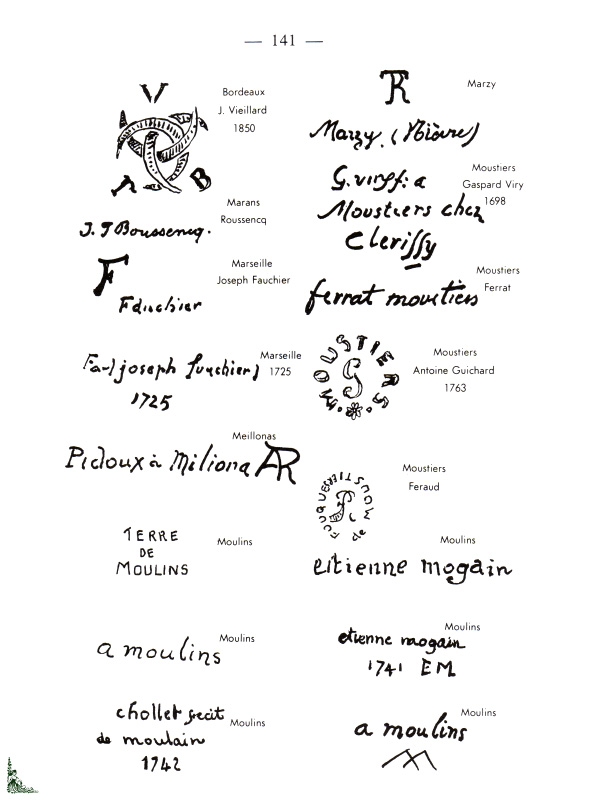 — 141 —
V
A B
Bordeaux
J. Vieillard
1850
J. F Boussencq.
Marans
Roussencq
F
Fauchier
Marseille
Joseph Fauchier
joseph fauchier
1725
Marseille
1725
Meillonas
Pidoux à Miliona AR
TERRE
DE
MOULINS
Moulins
a moulins
Moulins
chollet fecit
de moulain
1742
Moulins
Marzy
Marzy. (Nièvre)
G. viry f: a
Moustiers chez
Clerissy
Moustiers
Gaspard Viry
1698
ferrat moustiers
Moustiers
Ferrat
MOUSTIERS.
G
Moustiers
Antoine Guichard
1763
Moustiers
Feraud
Moulins
etienne mogain
Moulins
etienne mogain
1741 EM
Moulins
a moulins